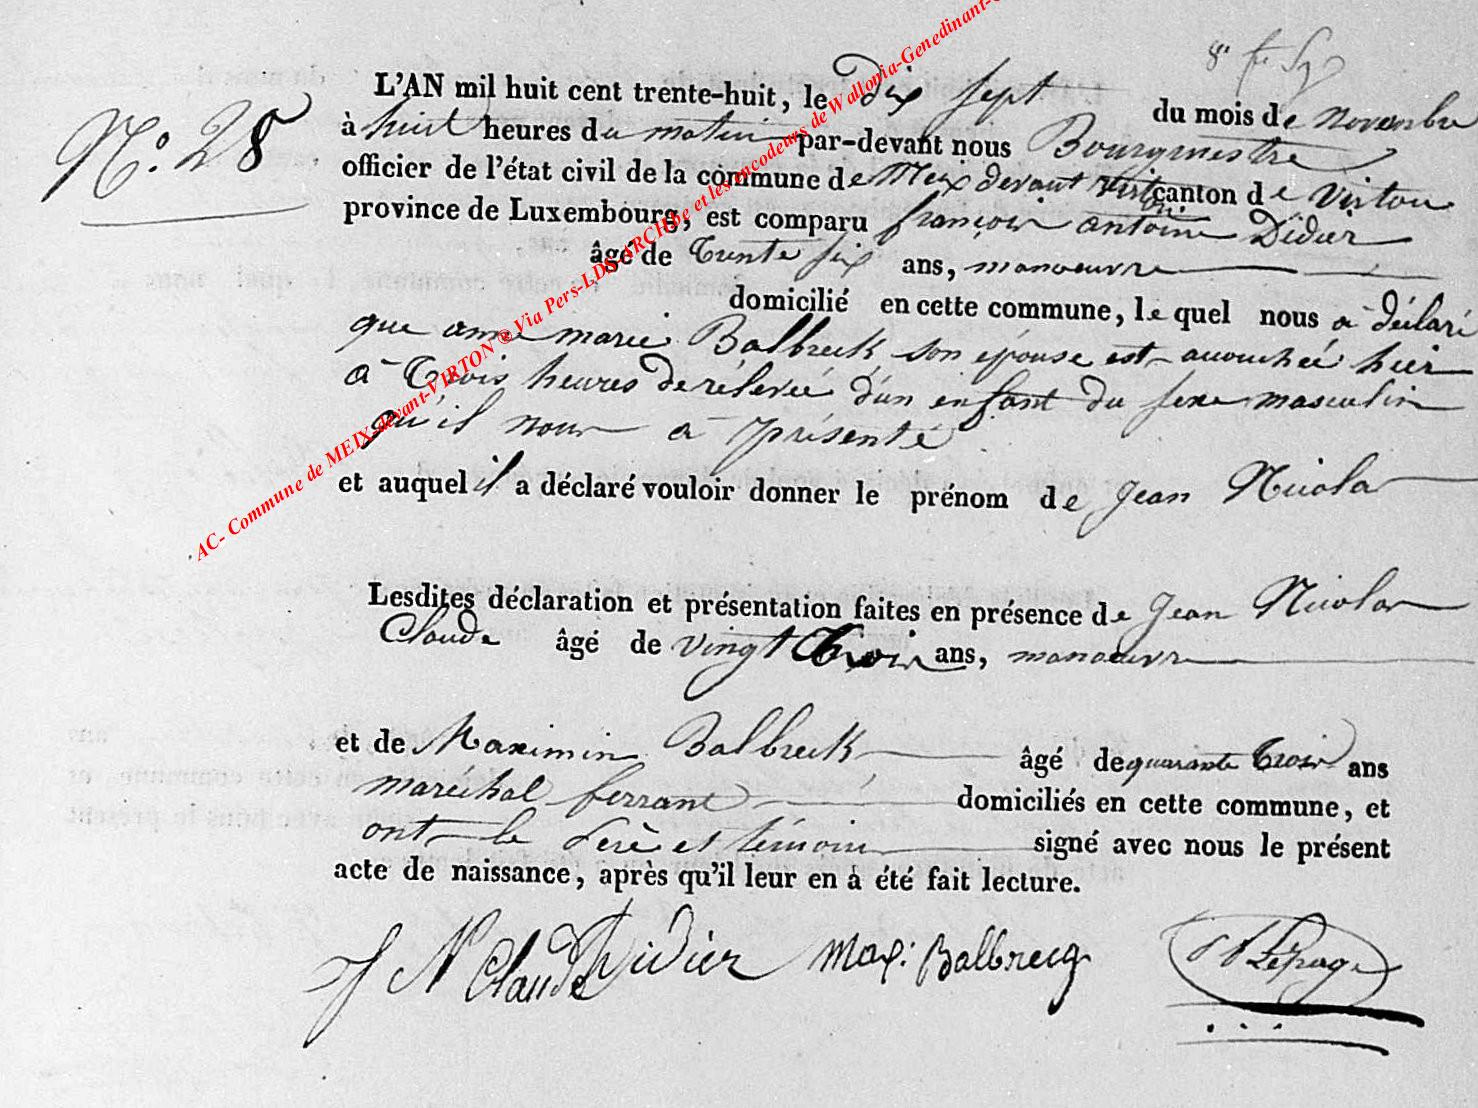 L'AN mil huit cent trente-huit, le dix sept du mois de novembre
N.° 28
à huit heures du matin par-devant nous Bourgmestre
officier de l'état civil de la commune de Meix devant virton canton de virton
province de Luxembourg, est comparu françois antoine Didier
âgé de trente six ans, manoeuvre
domicilié en cette commune, le quel nous a déclaré
que anne marie Balbreck son épouse est accouchée hier
à trois heures de rélevée d'un enfant du sexe masculin
qu'il nous a présenté
et auquel il a déclaré vouloir donner le prénom de jean Nicolas
Lesdites déclaration et présentation faites en présence de jean Nicolas
Claude âgé de vingt trois ans, manoeuvre
et de Maximin Balbreck âgé de quarante trois ans
maréchal ferrant domiciliés en cette commune, et
ont le Perè et témoins signé avec nous le présent
acte de naissance, après qu'il leur en à été fait lecture.
J N Claude Didier Max: Balbrecq Lepage
AC- Commune de MEIX-devant-VIRTON ® Via Pers-LDS-ARCH.be et les encodeurs de Wallonia-Genedinant-